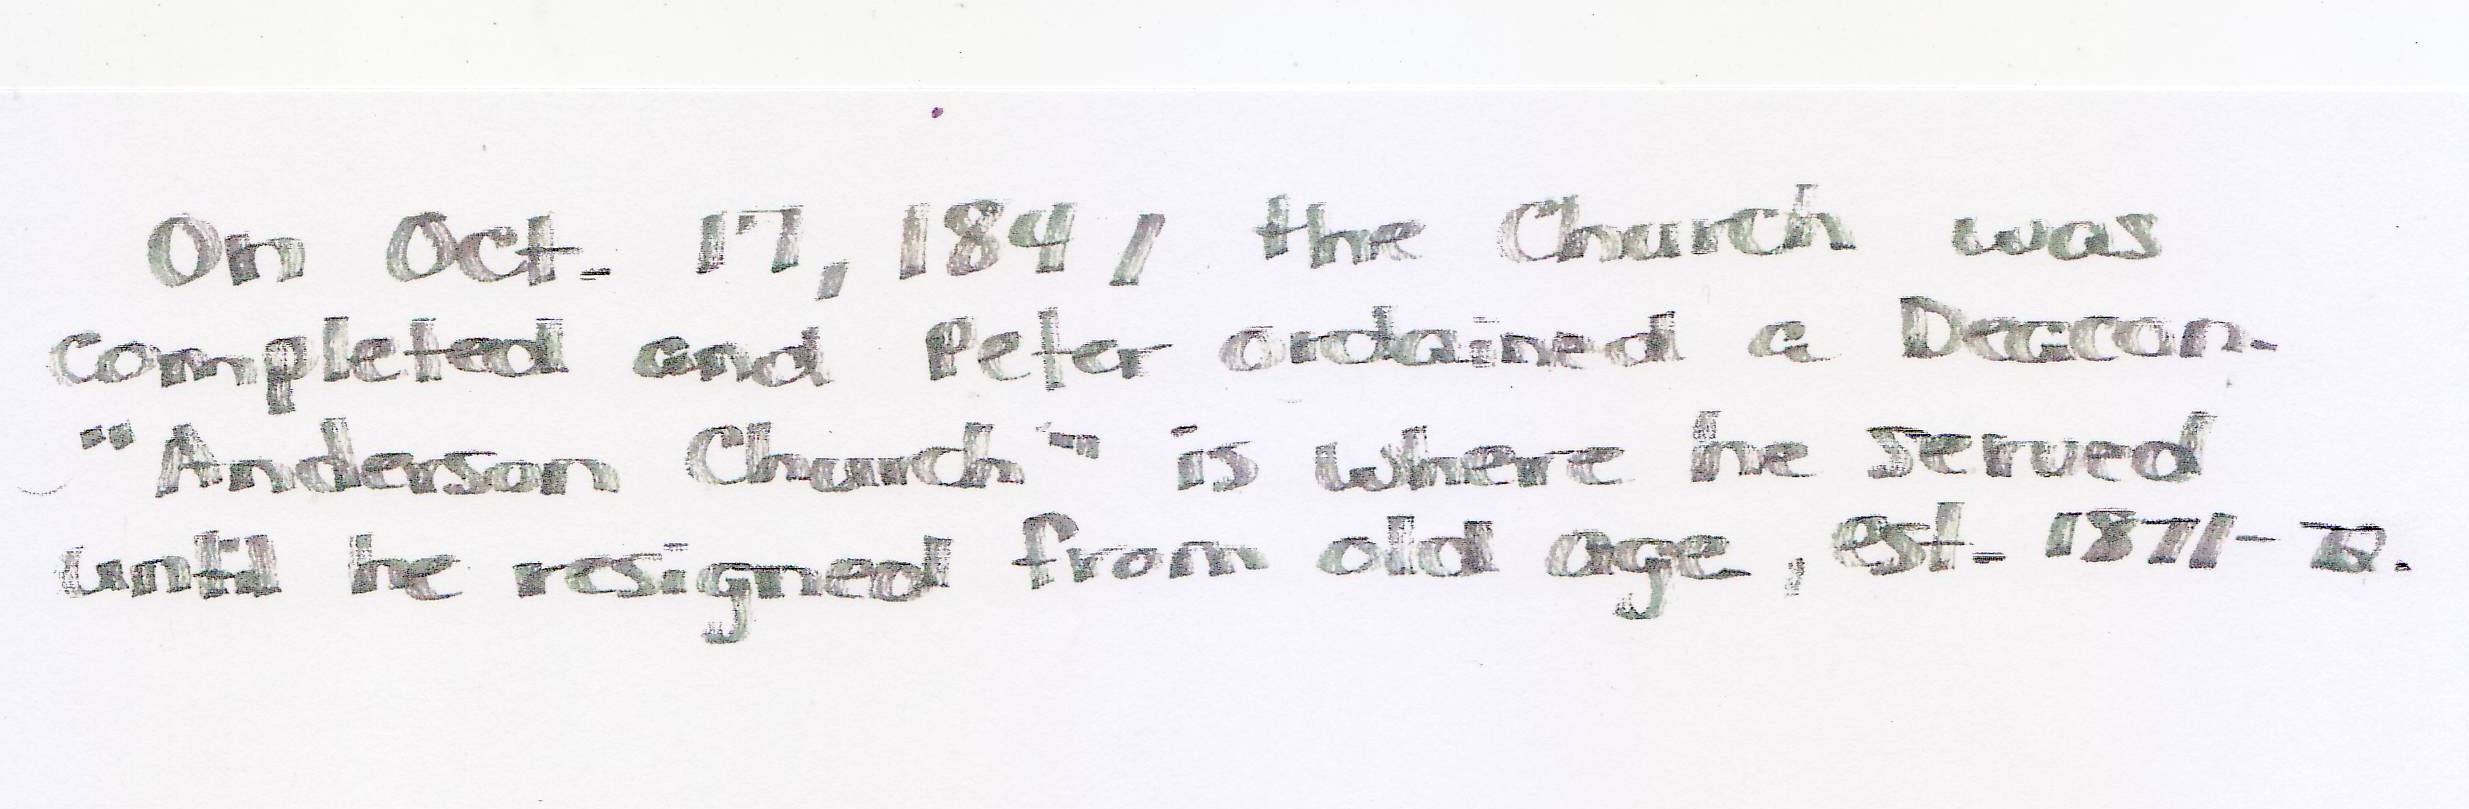 On Oct. 17, 1841 the Church was
completed and Peter ordained a Deacon.
"Anderson Church" is where he served
until he resigned from old age, est. 1871-72.